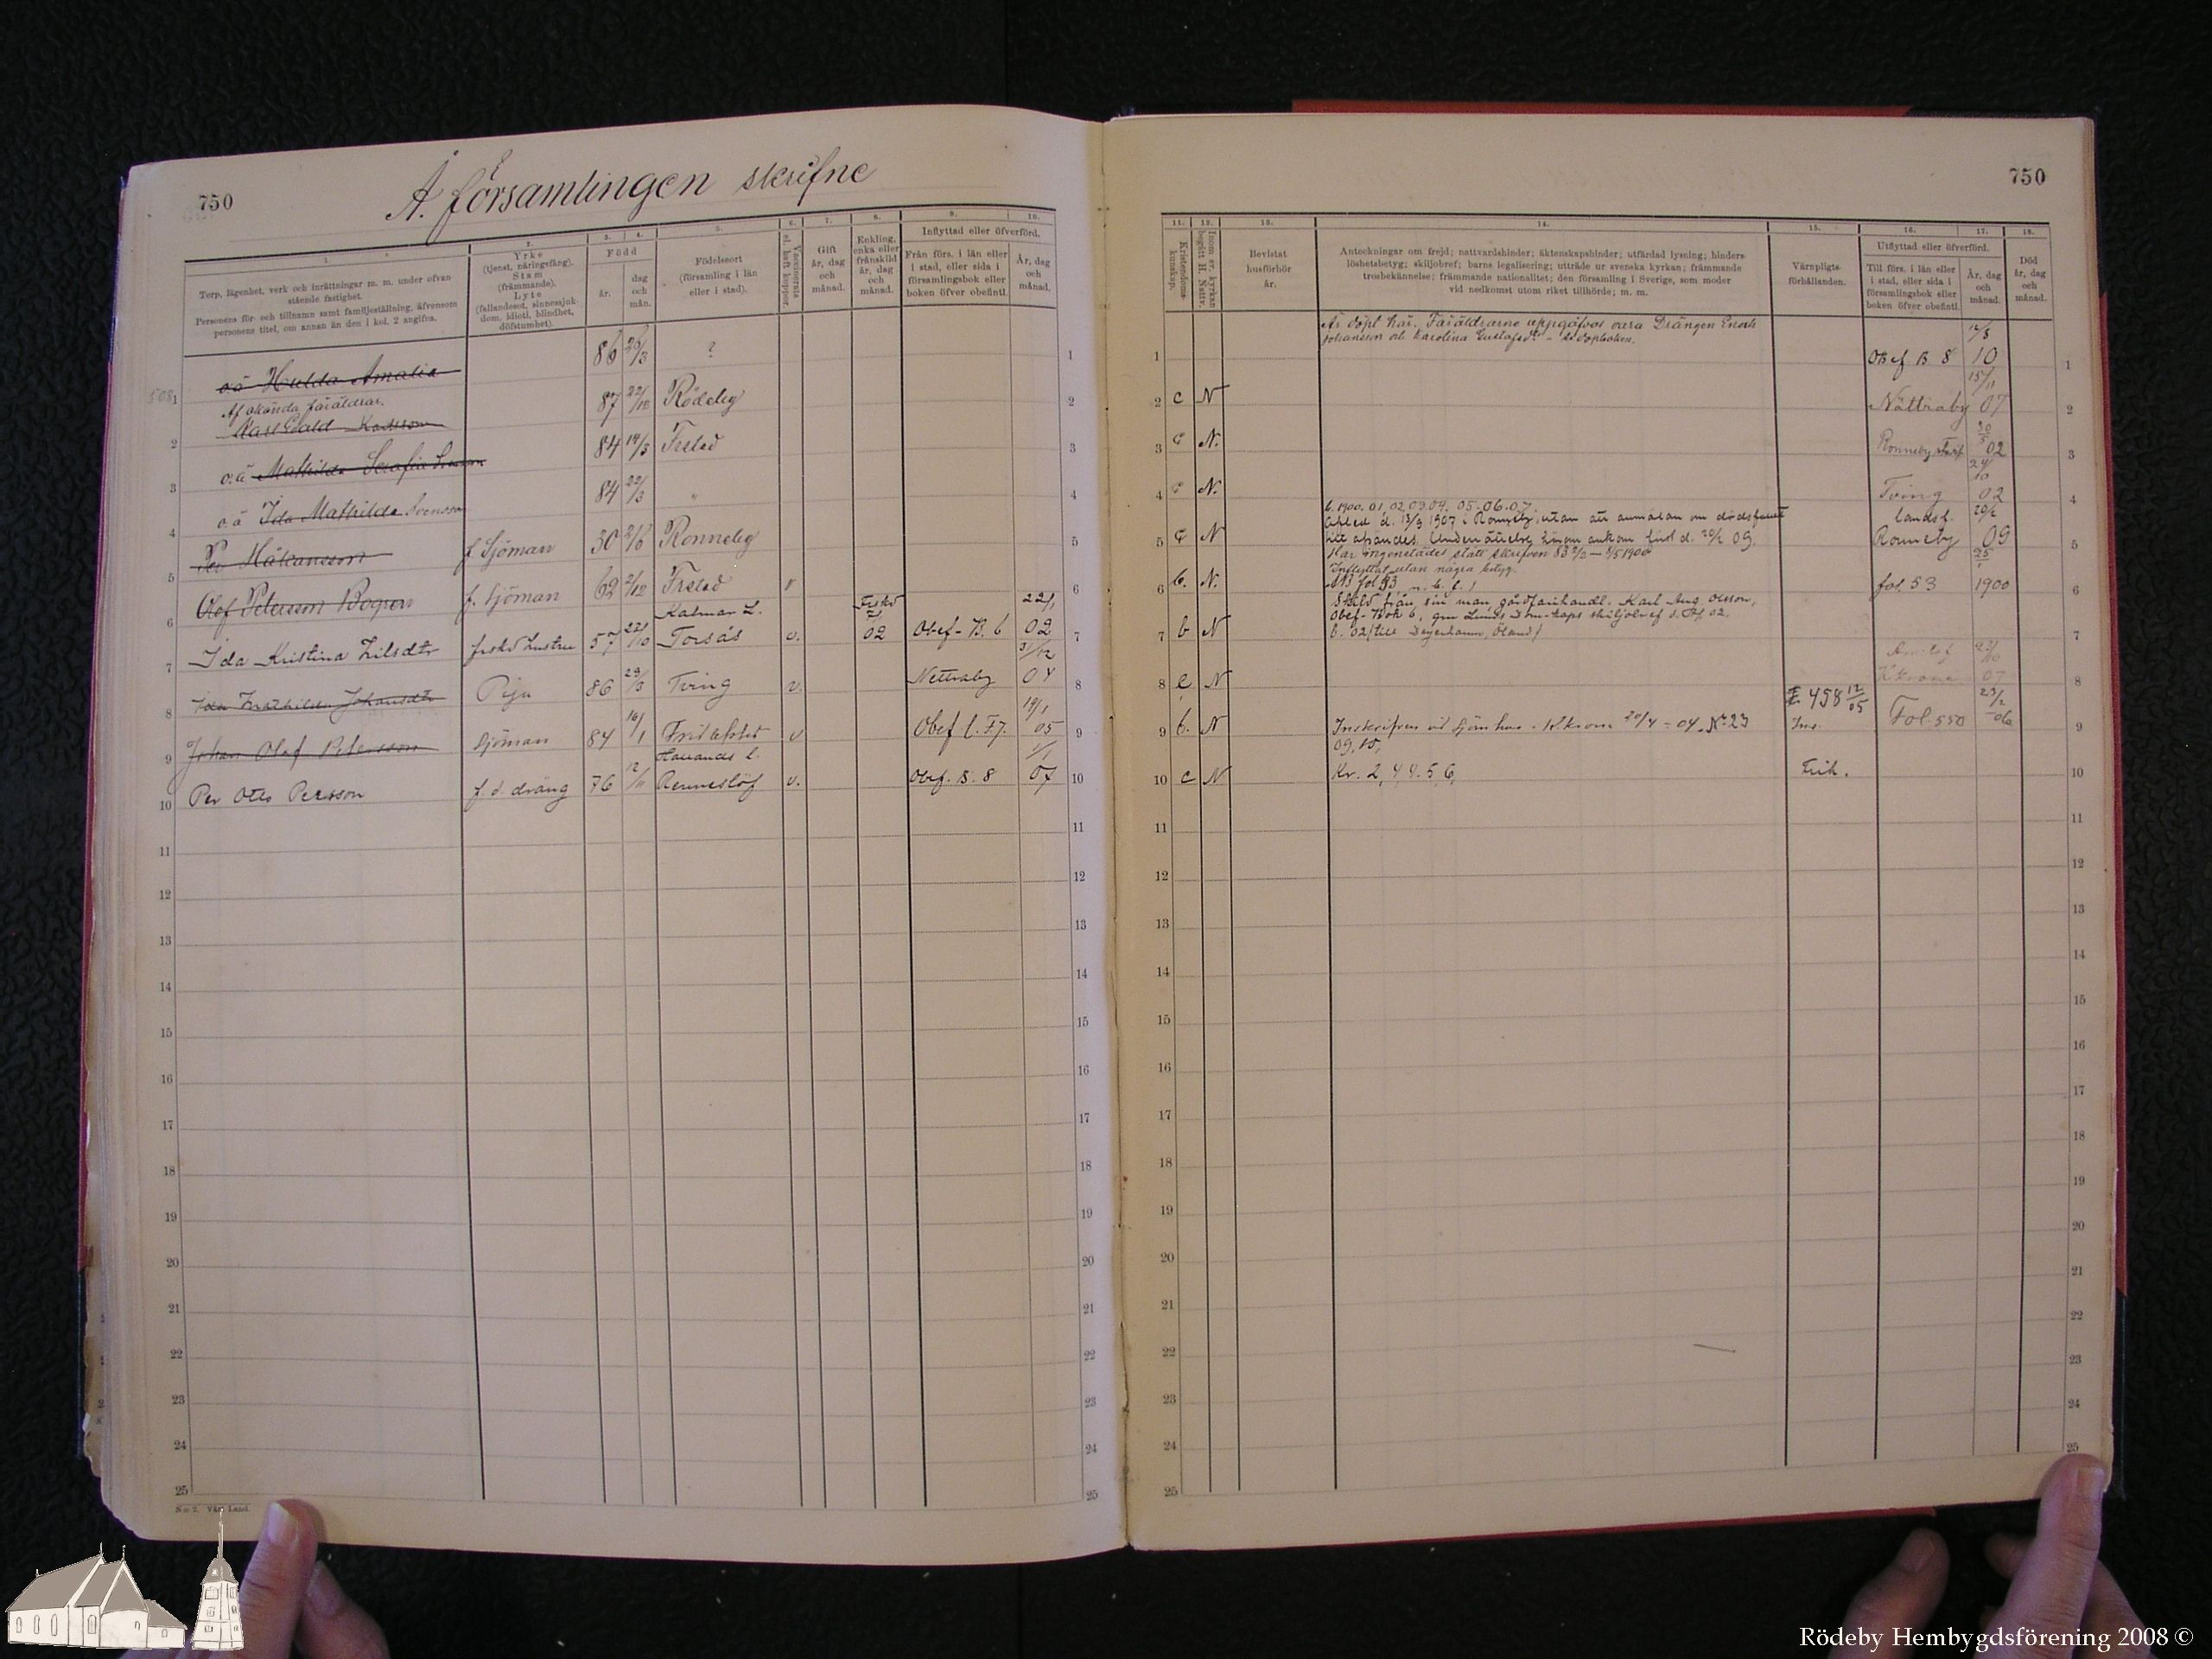 750
Å församlingen skrifne
750
1.
2.
3.
4.
5.
6.
7.
8.
9.
10.
Torp, lägenhet, verk och inrättningar m. m. under ofvan
stående fastighet.
Personens för- och tillnamn samt familjeställning, äfvensom
personens titel, om annan än den i kol. 2 angifna.
Yrke
(tjenst, näringsfång).
Stam
(främmande).
Lyte
(fallandesot, sinnessjuk-
dom, idioti, blindhet,
döfstumhet).
Född
år.
dag
och
mån.
Födelseort
(församling i län
eller i stad).
Vaccinerats
el. haft koppor.
Gift
år, dag
och
månad.
Enkling,
enka eller
frånskild
år, dag
och
månad.
Inflyttad eller öfverförd.
Från förs. i län eller
i stad, eller sida i
församlingsbok eller
boken öfver obefintl.
År, dag
och
månad.
11.
12.
13.
14.
15.
16.
17.
18.
Kristendoms-
kunskap.
Inom sv. kyrkan
begått H. Nattv.
Bevistat
husförhör
år.
Anteckningar om frejd; nattvardshinder; äktenskapshinder; utfärdad lysning; hinders-
löshetsbetyg; skiljobref; barns legalisering; utträde ur svenska kyrkan; främmande
trosbekännelse; främmande nationalitet; den församling i Sverige, som moder
vid nedkomst utom riket tillhörde; m. m.
Värnpligts-
förhållanden.
Utflyttad eller öfverförd.
Till förs. i län eller
i stad, eller sida i
församlingsbok eller
boken öfver obefintl.
År, dag
och
månad.
Död
år, dag
och
månad.
1 o.ä Hulda Amalia 86 26/3 ? 1
Af okända föräldrar.
2 Karl Karlsson 87 22/12 Rödeby 2
3 o.ä Mathilda Serafia 84 14/3 Frslad 3
4 o.ä Ida Mathilda Svensson 84 22/3 " 4
5 Per Håkansson f. Sjöman 30 2/6 Ronneby 5
6 Olof Petersson Bogren f. Sjöman 62 2/12 Frslad v 6
Kalmar L.
7 Ida Kristina Nilsdtr frskd hustru 57 22/10 Torsås v. Frskd 02 Obef-B. 6 22/1 02 7
8 Ida Mathilda Johansdtr Piga 86 29/3 Tving v. Nettraby 31/12 04 8
9 Johan Olof Petersson Sjöman 84 16/1 Fridlefstad v Obef l. 19/1 05 9
Hallands l.
10 Per Otto Persson f. d. dräng 76 12/11 Renneslöf v. Obef. B. 8 1/1 07 10
Är döpt här. Föräldrarne uppgåfvos vara Drängen Enoch
Johansson och Karolina
1 OBef B 8 12/3 10 1
2 c N Nättraby 15/11 07 2
3 c N. Ronneby 30/5 02 3
4 c N. Tving 24/10 02 4
b. 1900. 01, 02, 03, 04. 05. 06. 07.
d. 13/3 1907 i Ronneby, utan att anmälan om dödsfallet
5 c N landsf. Ronneby 20/2 09 5
Har ingenstädes stått skrifven
Inflyttat utan några betyg.
6 b. N. fol. 53 25/1 1900 6
Skild från sin man, gårdfarihandl. Karl Aug. Olsson,
Obef-Bok 6, gm Lunds Dom-kaps skiljobref d.
7 b N b. 02/till Degerhamn, Öland/ 7
8 c N K.krona 07 8
458 12/05
9 b. N Inskrifven vid Sjöm.hus. i K.krona 20/4 - 04. No 23 Ins. Fol. 550 23/2 -06 9
09, 10,
10 c N Kr. 2, 4 4. 5 6, Frik. 10
11 11 11 11
12 12 12 12
13 13 13 13
14 14 14 14
15 15 15 15
16 16 16 16
17 17 17 17
18 18 18 18
19 19 19 19
20 20 20 20
21 21 21 21
22 22 22 22
23 23 23 23
24 24 24 24
25 25 25 25
N:o 2. Vårt Land.
Rödeby Hembygdsförening 2008 ©